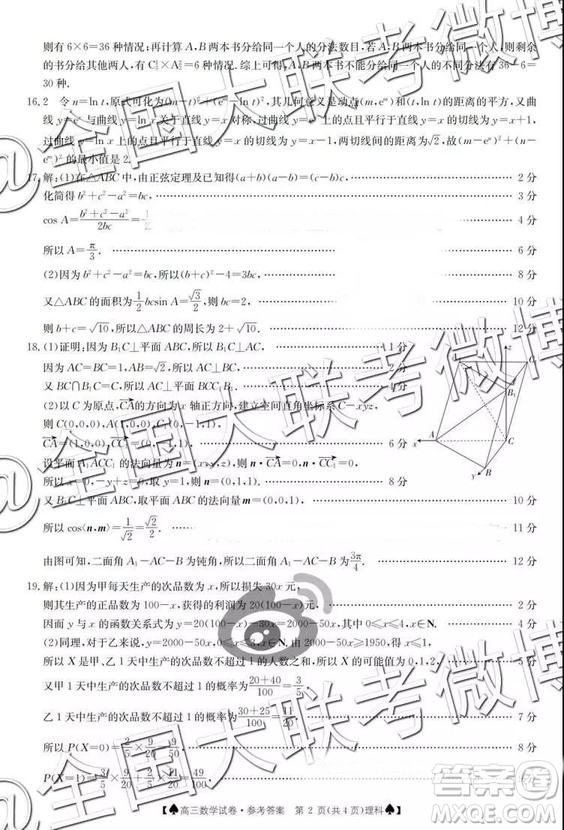 则有6×6=36种情况;再计算A,B两本书分给同一个人的分法数目,若A,B两本书分给同一个人,则剩余
的书分给其他两人,有C¹₃×A²₂=6种情况.综上可得,A,B两本书不能分给同一个人的不同分法有36-6=
30种.
16.2 令n=ln t,原式可化为(m-t)²+(eᵐ-ln t)²,其几何意义为动点(m,eᵐ)和(t,ln t)的距离的平方,又曲
线y=eˣ与曲线y=ln x关于直线y=x对称,
过曲线y=ln x上的点且与y=x平行的切线为y=x-1,两切线间的距离为√2,故(m-eⁿ)²+(n-
eᵐ)²的最小值是2.
17.解:(1)在△ABC中,由正弦定理及已知得(a+b)(a-b)=(c-b)c, 2分
化简得b²+c²-a²=bc, 3分
cos A=(b²+c²-a²)/2bc= 4分
所以A=π/3. 6分
(2)因为b²+c²-a²=bc,所以(b+c)²-4=3bc, 8分
又△ABC的面积为½bcsin A=√3/2,则bc=2, 10分
则b+c=√10,所以△ABC的周长为2+√10. 12分
18.(1)证明:因为B₁C⊥平面ABC,所以B₁C⊥AC, 1分
因为AC=BC=1,AB=√2,所以 2分
又BC∩B₁C=C,所以AC⊥平面
(2)以C为原点,CA的方向为x轴正方向,建立空间直角坐标系C-xyz,
则C(0,0,0),A(1,0,0),C₁(0,-1,1),
CA=(1,0,0),CC₁=(0,-1,1). 6分
设平面A₁ACC₁的法向量为n=(x,y,z),则n·CA=0,n·CC₁=0,
所以x=0,-y+z=0,取y=1,则n=(0,1,1). 8分
又B₁C⊥平面ABC,取平面ABC的法向量m=(0,0,1), 10分
所以cos⟨n,m⟩=1/√2=√2/2. 11分
由图可知,二面角A₁-AC-B为钝角,所以二面角A₁-AC-B为3π/4. 12分
19.解:(1)因为甲每天生产的次品数为x,所以损失30x元,
则其生产的正品数为100-x,获得的利润为20(100-x)元, 2分
因而y与x的函数关系式为y=20(100-x)-30x=2000-50x,其中0≤x≤4,x∈N. 4分
(2)同理,对于乙来说,y=2000-50x,0≤x≤3,x∈N.由2000-50x≥1950,得x≤1,
所以X是甲、乙1天中生产的次品数不超过1的人数之和,所以X的可能值为0,1,2,
又甲1天中生产的次品数不超过1的概率为(20+40)/100=3/5,
乙1天中生产的次品数不超过1的概率为(30+25)/100=11/20, 7分
所以P(X=0)=2/5×9/20=9/50, 8分
P(X=1)=3/5×9/20+2/5×11/20=49/100,
♠高三数学试卷·参考答案 第2页(共4页)理科♠
@全国大联考微博
答案圈
MXQE.COM